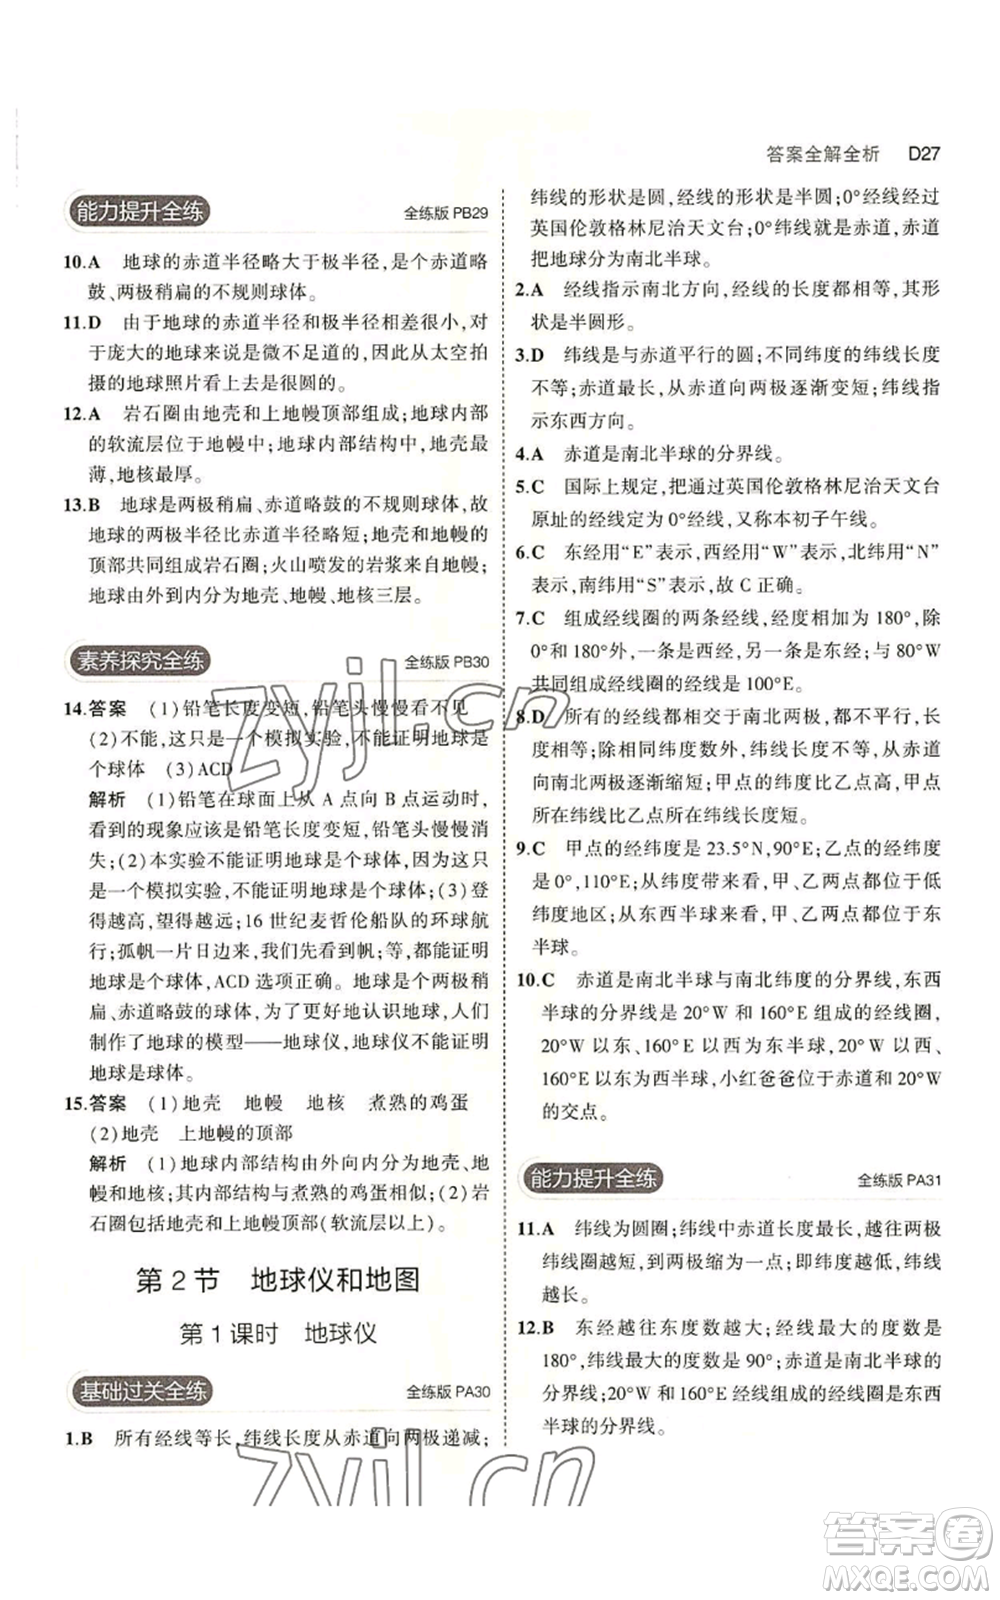 答案全解全析 D27
能力提升全练 全练版 PB29
10.A 地球的赤道半径略大于极半径,是个赤道略
鼓、两极稍扁的不规则球体。
11.D 由于地球的赤道半径和极半径相差很小,对
于庞大的地球来说是微不足道的,因此从太空拍
摄的地球照片看上去是很圆的。
12.A 岩石圈由地壳和上地幔顶部组成;地球内部
的软流层位于地幔中;地球内部结构中,地壳最
薄,地核最厚。
13.B 地球是两极稍扁、赤道略鼓的不规则球体,故
地球的两极半径比赤道半径略短;地壳和地幔的
顶部共同组成岩石圈;火山喷发的岩浆来自地幔;
地球由外到内分为地壳、地幔、地核三层。
素养探究全练 全练版 PB30
14.答案 (1)铅笔长度变短,铅笔头慢慢看不见
(2)不能,这只是一个模拟实验,不能证明地球是
个球体 (3)ACD
解析 (1)铅笔在球面上从 A 点向 B 点运动时,
看到的现象应该是铅笔长度变短,铅笔头慢慢消
失;(2)本实验不能证明地球是个球体,因为这只
是一个模拟实验,不能证明地球是个球体;(3)登
得越高,望得越远;16 世纪麦哲伦船队的环球航
行;孤帆一片日边来,我们先看到帆;等,都能证明
地球是个球体,ACD 选项正确。地球是个两极稍
扁、赤道略鼓的球体,为了更好地认识地球,人们
制作了地球的模型——地球仪,地球仪不能证明
地球是球体。
15.答案 (1)地壳 地幔 地核 煮熟的鸡蛋
(2)地壳 上地幔的顶部
解析 (1)地球内部结构由外向内分为地壳、地
幔和地核;其内部结构与煮熟的鸡蛋相似。(2)岩
石圈包括地壳和上地幔顶部(软流层以上)。
第 2 节 地球仪和地图
第 1 课时 地球仪
基础过关全练 全练版 PA30
1.B 所有经线等长,纬线长度从赤道向两极递减;
纬线的形状是圆,经线的形状是半圆;0°经线经过
英国伦敦格林尼治天文台;0°纬线就是赤道,赤道
把地球分为南北半球。
2.A 经线指示南北方向,经线的长度都相等,其形
状是半圆形。
3.D 纬线是与赤道平行的圆;不同纬度的纬线长度
不等;赤道最长,从赤道向两极逐渐变短;纬线指
示东西方向。
4.A 赤道是南北半球的分界线。
5.C 国际上规定,把通过英国伦敦格林尼治天文台
原址的经线定为 0°经线,又称本初子午线。
6.C 东经用“E”表示,西经用“W”表示,北纬用“N”
表示,南纬用“S”表示,故 C 正确。
7.C 组成经线圈的两条经线,经度相加为 180°,除
0°和 180°外,一条是西经,另一条是东经;与 80°W
共同组成经线圈的经线是 100°E。
8.D 所有的经线都相交于南北两极,都不平行,长
度相等;同纬度数外,纬线长度不等,从赤道
向南北两极逐渐缩短;甲点的纬度比乙点高,甲点
所在纬线比乙点所在纬线短。
9.C 甲点的经纬度是 23.5°N,90°E;乙点的经纬度
是 0°,110°E;从纬度带来看,甲、乙两点都位于低
纬度地区;从东西半球来看,甲、乙两点都位于东
半球。
10.C 赤道是南北半球与南北纬度的分界线,东西
半球的分界线是 20°W 和 160°E 组成的经线圈,
20°W 以东、160°E 以西为东半球,20°W 以西、
160°E 以东为西半球,小红爸爸位于赤道和 20°W
的交点。
能力提升全练 全练版 PA31
11.A 纬线为圆圈;纬线中赤道长度最长,越往两极
纬线圈越短,到两极点为点;即纬度越低,纬线
越长。
12.B 东经越往东度数越大;经线最大的度数是
180°,纬线最大的度数是 90°;赤道是南北半球的
分界线;20°W 和 160°E 经线组成的经线圈是东西
半球的分界线。
zyjl.cn
zyjl.cn
答案圈
MXQE.COM